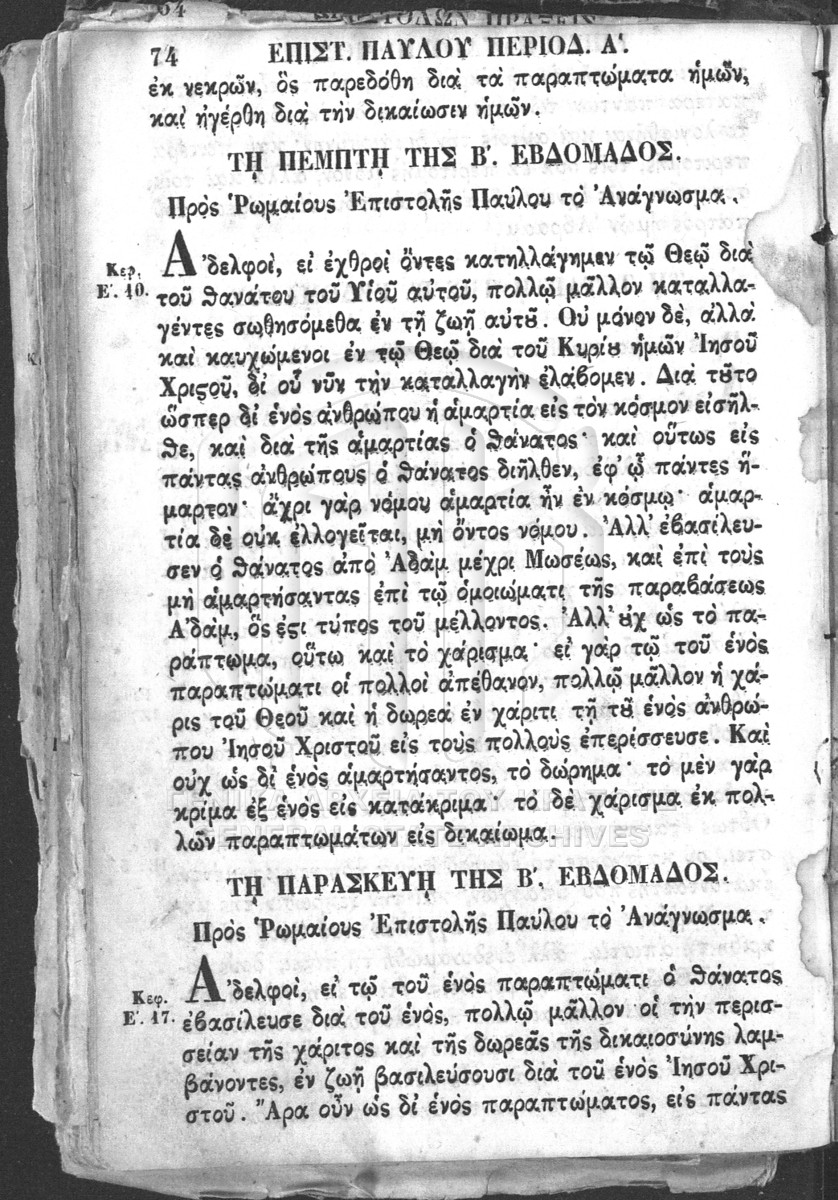 74 ΕΠΙΣΤ. ΠΑΥΛΟΥ ΠΕΡΙΟΔ. Α'.
ἐκ νεκρῶν, ὃς παρεδόθη διὰ τὰ παραπτώματα ἡμῶν,
καὶ ἠγέρθη διὰ τὴν δικαίωσιν ἡμῶν.
ΤΗ ΠΕΜΠΤΗ ΤΗΣ Β'. ΕΒΔΟΜΑΔΟΣ.
Πρὸς Ῥωμαίους Ἐπιστολῆς Παύλου τὸ Ἀνάγνωσμα.
Κεφ. Ἀδελφοὶ, εἰ ἐχθροὶ ὄντες κατηλλάγημεν τῷ Θεῷ διὰ
Ε'. 10. τοῦ θανάτου τοῦ Υἱοῦ αὐτοῦ, πολλῷ μᾶλλον καταλλα-
γέντες σωθησόμεθα ἐν τῇ ζωῇ αὐτȣ͂. Οὐ μόνον δὲ, ἀλλὰ
καὶ καυχώμενοι ἐν τῷ Θεῷ διὰ τοῦ Κυρίȣ ἡμῶν Ἰησοῦ
Χριϛοῦ, δι' οὗ νῦν τὴν καταλλαγὴν ἐλάβομεν. Διὰ τȣ͂το
ὥσπερ δι' ἑνὸς ἀνθρώπου ἡ ἁμαρτία εἰς τὸν κόσμον εἰσῆλ-
θε, καὶ διὰ τῆς ἁμαρτίας ὁ θάνατος· καὶ οὕτως εἰς
πάντας ἀνθρώπους ὁ θάνατος διῆλθεν, ἐφ' ᾧ πάντες ἥ-
μαρτον· ἄχρι γὰρ νόμου ἁμαρτία ἦν ἐν κόσμῳ· ἁμαρ-
τία δὲ οὐκ ἐλλογεῖται, μὴ ὄντος νόμου. Ἀλλ' ἐβασίλευ-
σεν ὁ θάνατος ἀπὸ Ἀδὰμ μέχρι Μωσέως, καὶ ἐπὶ τοὺς
μὴ ἁμαρτήσαντας ἐπὶ τῷ ὁμοιώματι τῆς παραβάσεως
Ἀδὰμ, ὅς ἐϛι τύπος τοῦ μέλλοντος. Ἀλλ' ȣ̓χ ὡς τὸ πα-
ράπτωμα, οὕτω καὶ τὸ χάρισμα· εἰ γὰρ τῷ τοῦ ἑνὸς
παραπτώματι οἱ πολλοὶ ἀπέθανον, πολλῷ μᾶλλον ἡ χά-
ρις τοῦ Θεοῦ καὶ ἡ δωρεὰ ἐν χάριτι τῇ τȣ͂ ἑνὸς ἀνθρώ-
που Ἰησοῦ Χριστοῦ εἰς τοὺς πολλοὺς ἐπερίσσευσε. Καὶ
οὐχ ὡς δι' ἑνὸς ἁμαρτήσαντος, τὸ δώρημα· τὸ μὲν γὰρ
κρίμα ἐξ ἑνὸς εἰς κατάκριμα· τὸ δὲ χάρισμα ἐκ πολ-
λῶν παραπτωμάτων εἰς δικαίωμα.
ΓΕΝΙΚΑ ΑΡΧΕΙΑ ΤΟΥ ΚΡΑΤΟΥΣ
GENERAL STATE ARCHIVES
ΤΗ ΠΑΡΑΣΚΕΥΗ ΤΗΣ Β'. ΕΒΔΟΜΑΔΟΣ.
Πρὸς Ῥωμαίους Ἐπιστολῆς Παύλου τὸ Ἀνάγνωσμα.
Κεφ. Ἀδελφοὶ, εἰ τῷ τοῦ ἑνὸς παραπτώματι ὁ θάνατος
Ε'. 17. ἐβασίλευσε διὰ τοῦ ἑνὸς, πολλῷ μᾶλλον οἱ τὴν περισ-
σείαν τῆς χάριτος καὶ τῆς δωρεᾶς τῆς δικαιοσύνης λαμ-
βάνοντες, ἐν ζωῇ βασιλεύσουσι διὰ τοῦ ἑνὸς Ἰησοῦ Χρι-
στοῦ. Ἄρα οὖν ὡς δι' ἑνὸς παραπτώματος, εἰς πάντας